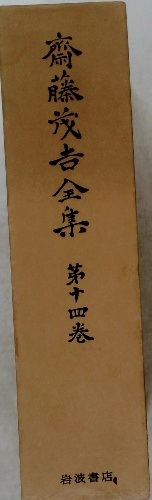 齋藤茂吉全集
第十四巻
岩波書店